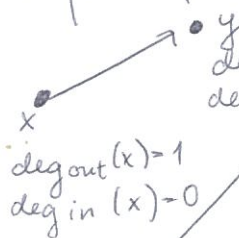 y
x
deg out (x) = 1
deg in (x) = 0